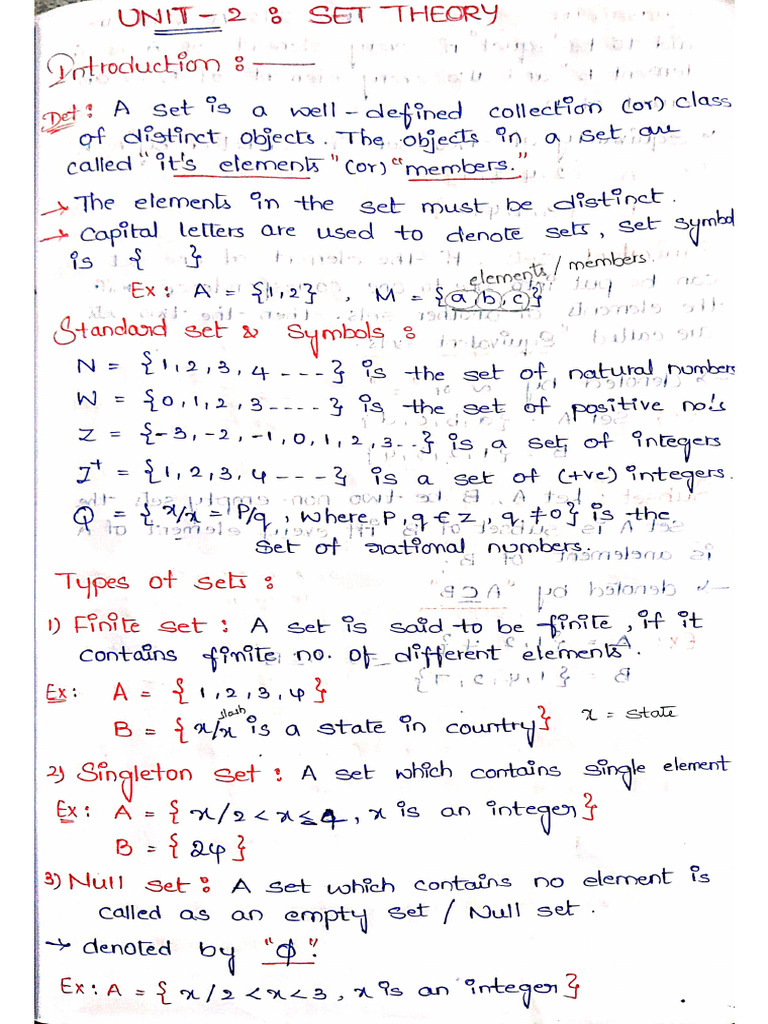 UNIT - 2 : SET THEORY
Introduction :
Def : A set is a well-defined collection (or) class
of distinct objects. The objects in a set are
called "it's elements" (or) "members."
→ The elements in the set must be distinct.
→ Capital letters are used to denote sets, set symbol
is { }
elements / members.
Ex : A = {1,2} , M = {a, b, c}
Standard set & Symbols :
N = {1, 2, 3, 4 ----} is the set of natural numbers
W = {0, 1, 2, 3 ----.} is the set of positive no.'s
Z = {-3, -2, -1, 0, 1, 2, 3 ..} is a set of integers
I⁺ = {1, 2, 3, 4 ----} is a set of (+ve) integers.
Q = { x/x = P/q , where P, q ∈ z , q ≠ 0} is the
set of rational numbers.
Types of sets :
1) Finite set : A set is said to be finite, if it
contains finite no. of different elements.
Ex : A = {1, 2, 3, 4}
slash
B = { x/x is a state in country} x = state
2) Singleton set : A set which contains single element
Ex : A = { x/2 < x ≤ 4 , x is an integer}
B = { 24 }
3) Null set : A set which contains no element is
called as an empty set / Null set.
→ denoted by "ϕ".
Ex : A = { x/2 < x < 3 , x is an integer}